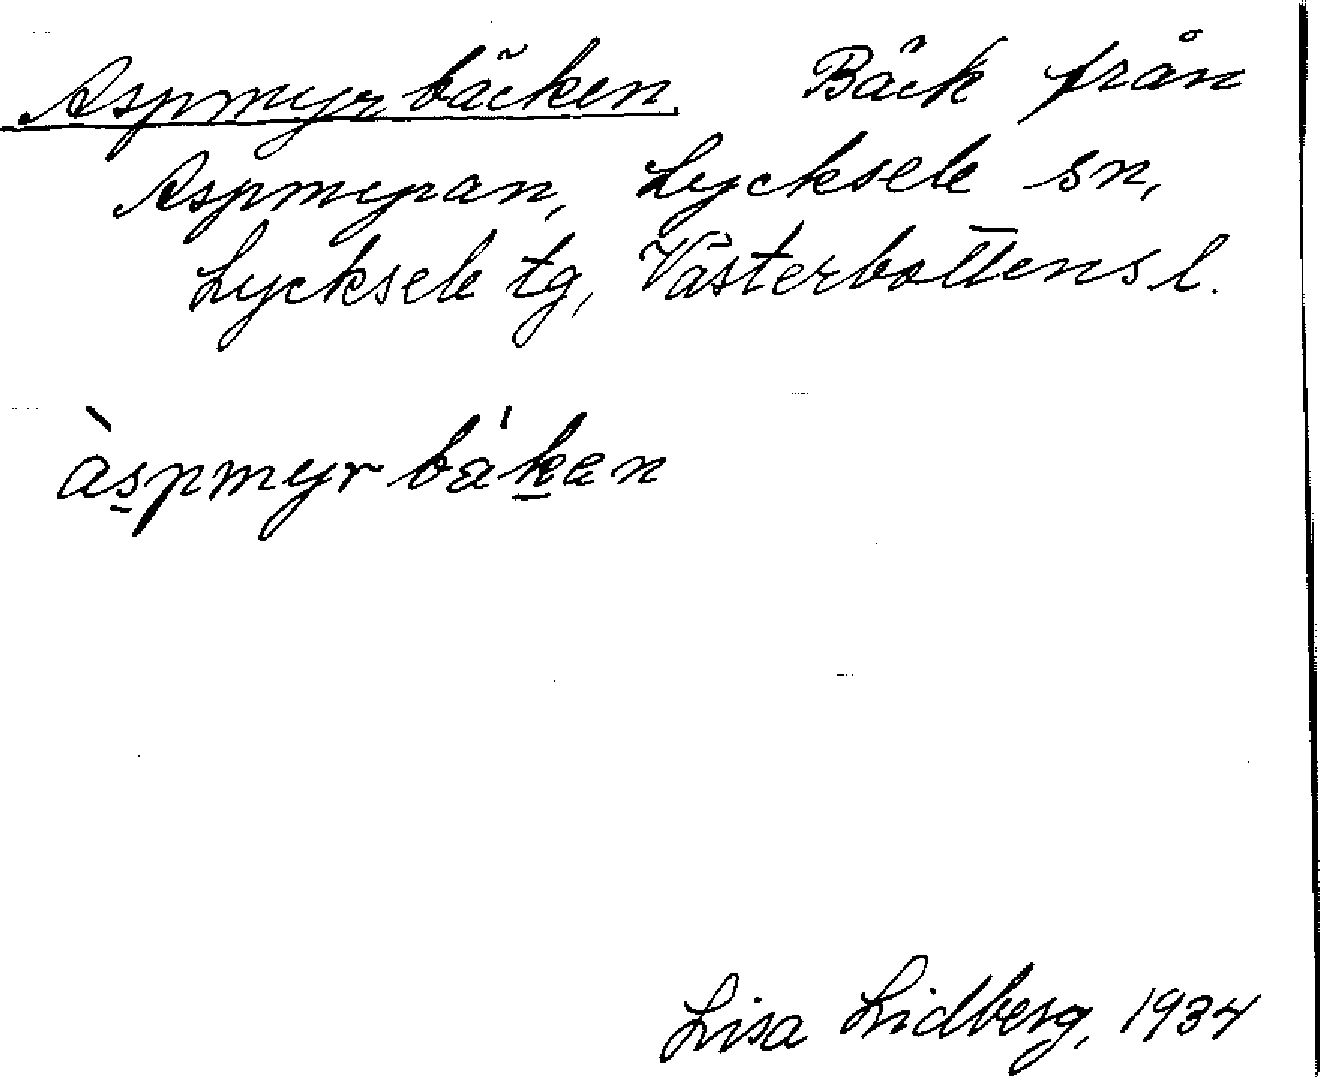 Aspmyrbäcken. Bäck från
Aspmyran, Lycksele sn,
Lycksele tg, Västerbottens l.
às̲pmyrbä'k̲æn
Lisa Lidberg, 1934